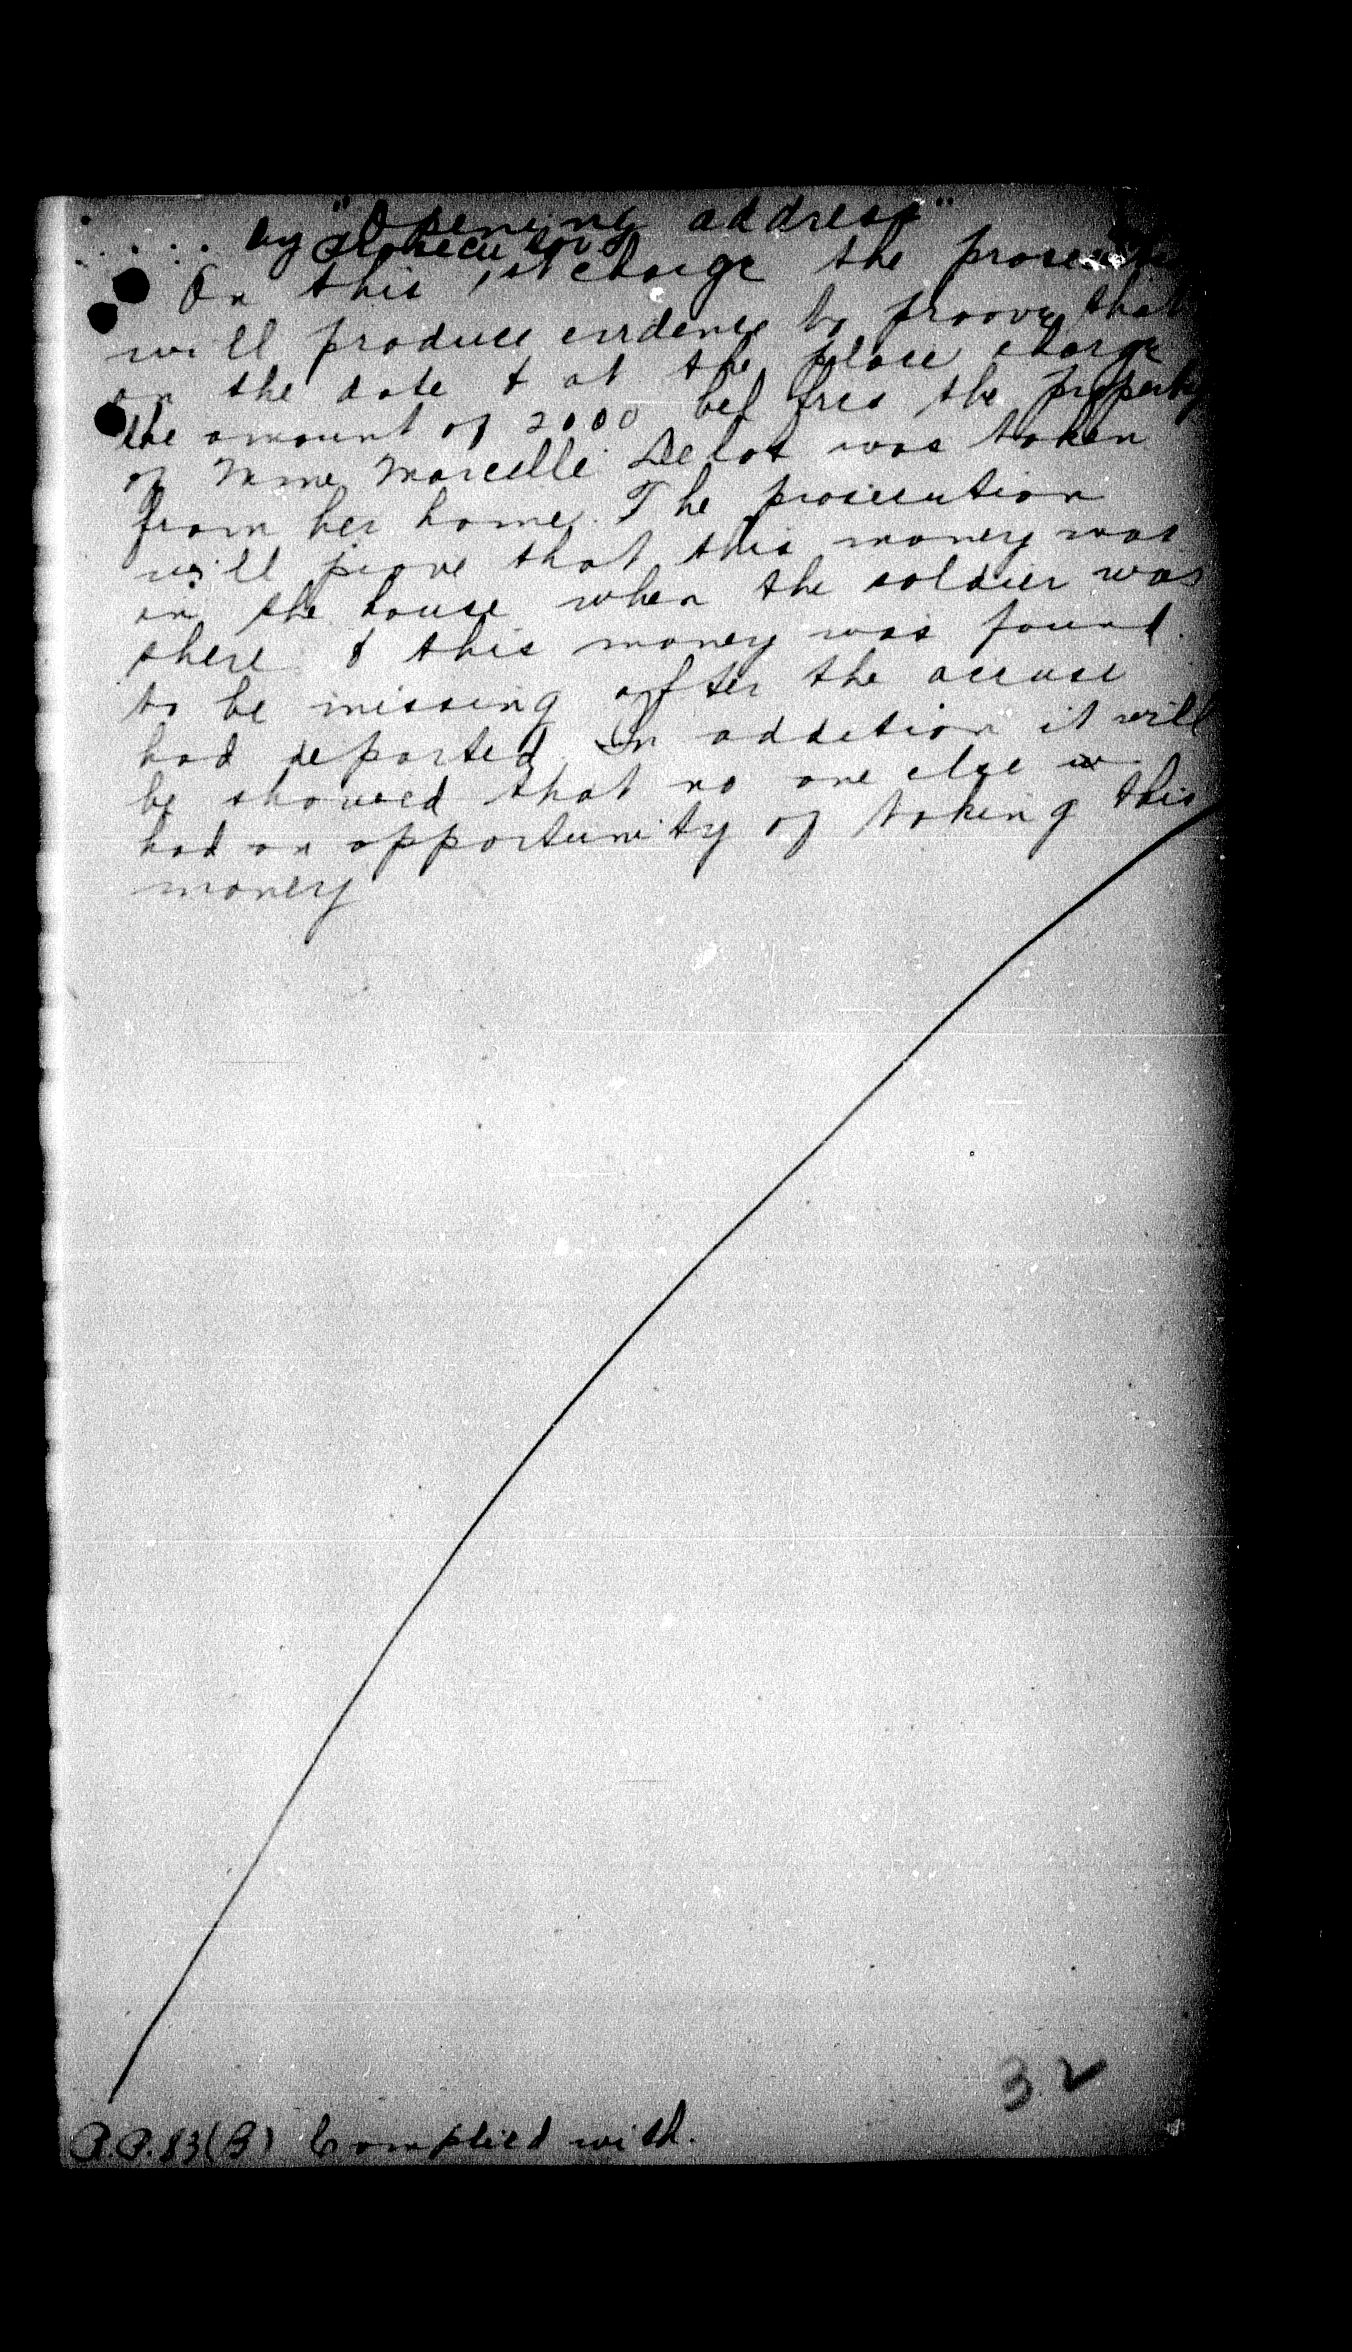 "Opening address"
by Prosecutor
On this 1st charge the prosecution
will produce evidence to proove that
on the date & at the place charge
the amount of 2000 bel frcs the property
of Mme Marcelle Delat was taken
from her home. The prosecution
will prove that this money was
in the house when the soldier was
there & this money was found
to be missing after the accuse
had departed. In addition it will
be showed that no one else
had an opportunity of taking this
money
32
R.P. 83(B) Complied with.